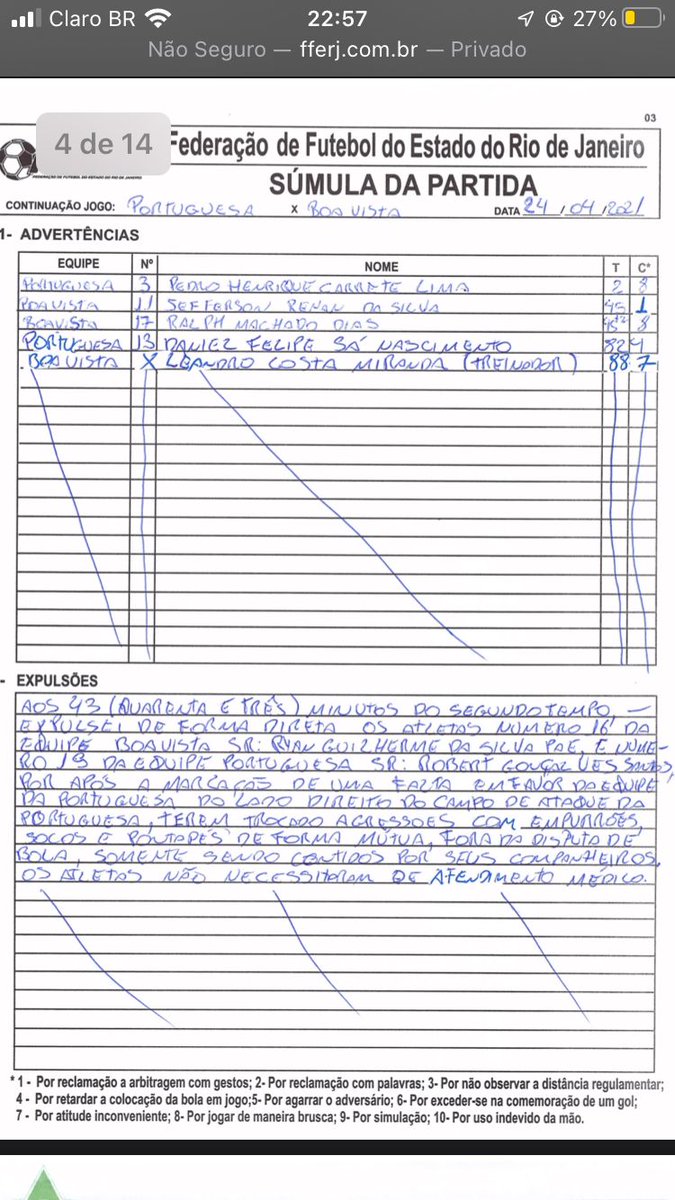 Claro BR 22:57 27%
Não Seguro — fferj.com.br — Privado
03
4 de 14 Federação de Futebol do Estado do Rio de Janeiro
FEDERAÇÃO DE FUTEBOL DO ESTADO DO RIO DE JANEIRO
SÚMULA DA PARTIDA
CONTINUAÇÃO JOGO: PORTUGUESA X BOAVISTA DATA 24/04/2021
1- ADVERTÊNCIAS
EQUIPE Nº NOME T C*
PORTUGUESA 3 PEDRO HENRIQUE CARRETE LIMA 2 8
BOAVISTA 11 JEFFERSON RENAN DA SILVA 45 1
BOAVISTA 17 RALPH MACHADO DIAS 8
PORTUGUESA 13 DANIEL FELIPE SÁ NASCIMENTO 82 4
BOAVISTA X LEANDRO COSTA MIRANDA (TREINADOR) 88 7
- EXPULSÕES
AOS 43 (QUARENTA E TRÊS) MINUTOS DO SEGUNDO TEMPO, —
EXPULSEI DE FORMA DIRETA OS ATLETAS NÚMERO 16 DA
EQUIPE BOAVISTA SR: RYAN GUILHERME DA SILVA PAE, E NÚME-
RO 19 DA EQUIPE PORTUGUESA SR: ROBERT GOUÇALVES SANTOS,
POR APÓS A MARCAÇÃO DE UMA FALTA EM FAVOR DA EQUIPE
DA PORTUGUESA DO LADO DIREITO DO CAMPO DE ATAQUE DA
PORTUGUESA, TEREM TROCADO AGRESSÕES COM EMPURRÕES,
SOCOS E PONTAPÉS DE FORMA MÚTUA, FORA DA DISPUTA DE
BOLA, SOMENTE SENDO CONTIDOS POR SEUS COMPANHEIROS.
OS ATLETAS NÃO NECESSITARAM DE ATENDIMENTO MÉDICO.
* 1 - Por reclamação a arbitragem com gestos; 2- Por reclamação com palavras; 3- Por não observar a distância regulamentar;
4 - Por retardar a colocação da bola em jogo;5- Por agarrar o adversário; 6- Por exceder-se na comemoração de um gol;
7 - Por atitude inconveniente; 8- Por jogar de maneira brusca; 9- Por simulação; 10- Por uso indevido da mão.